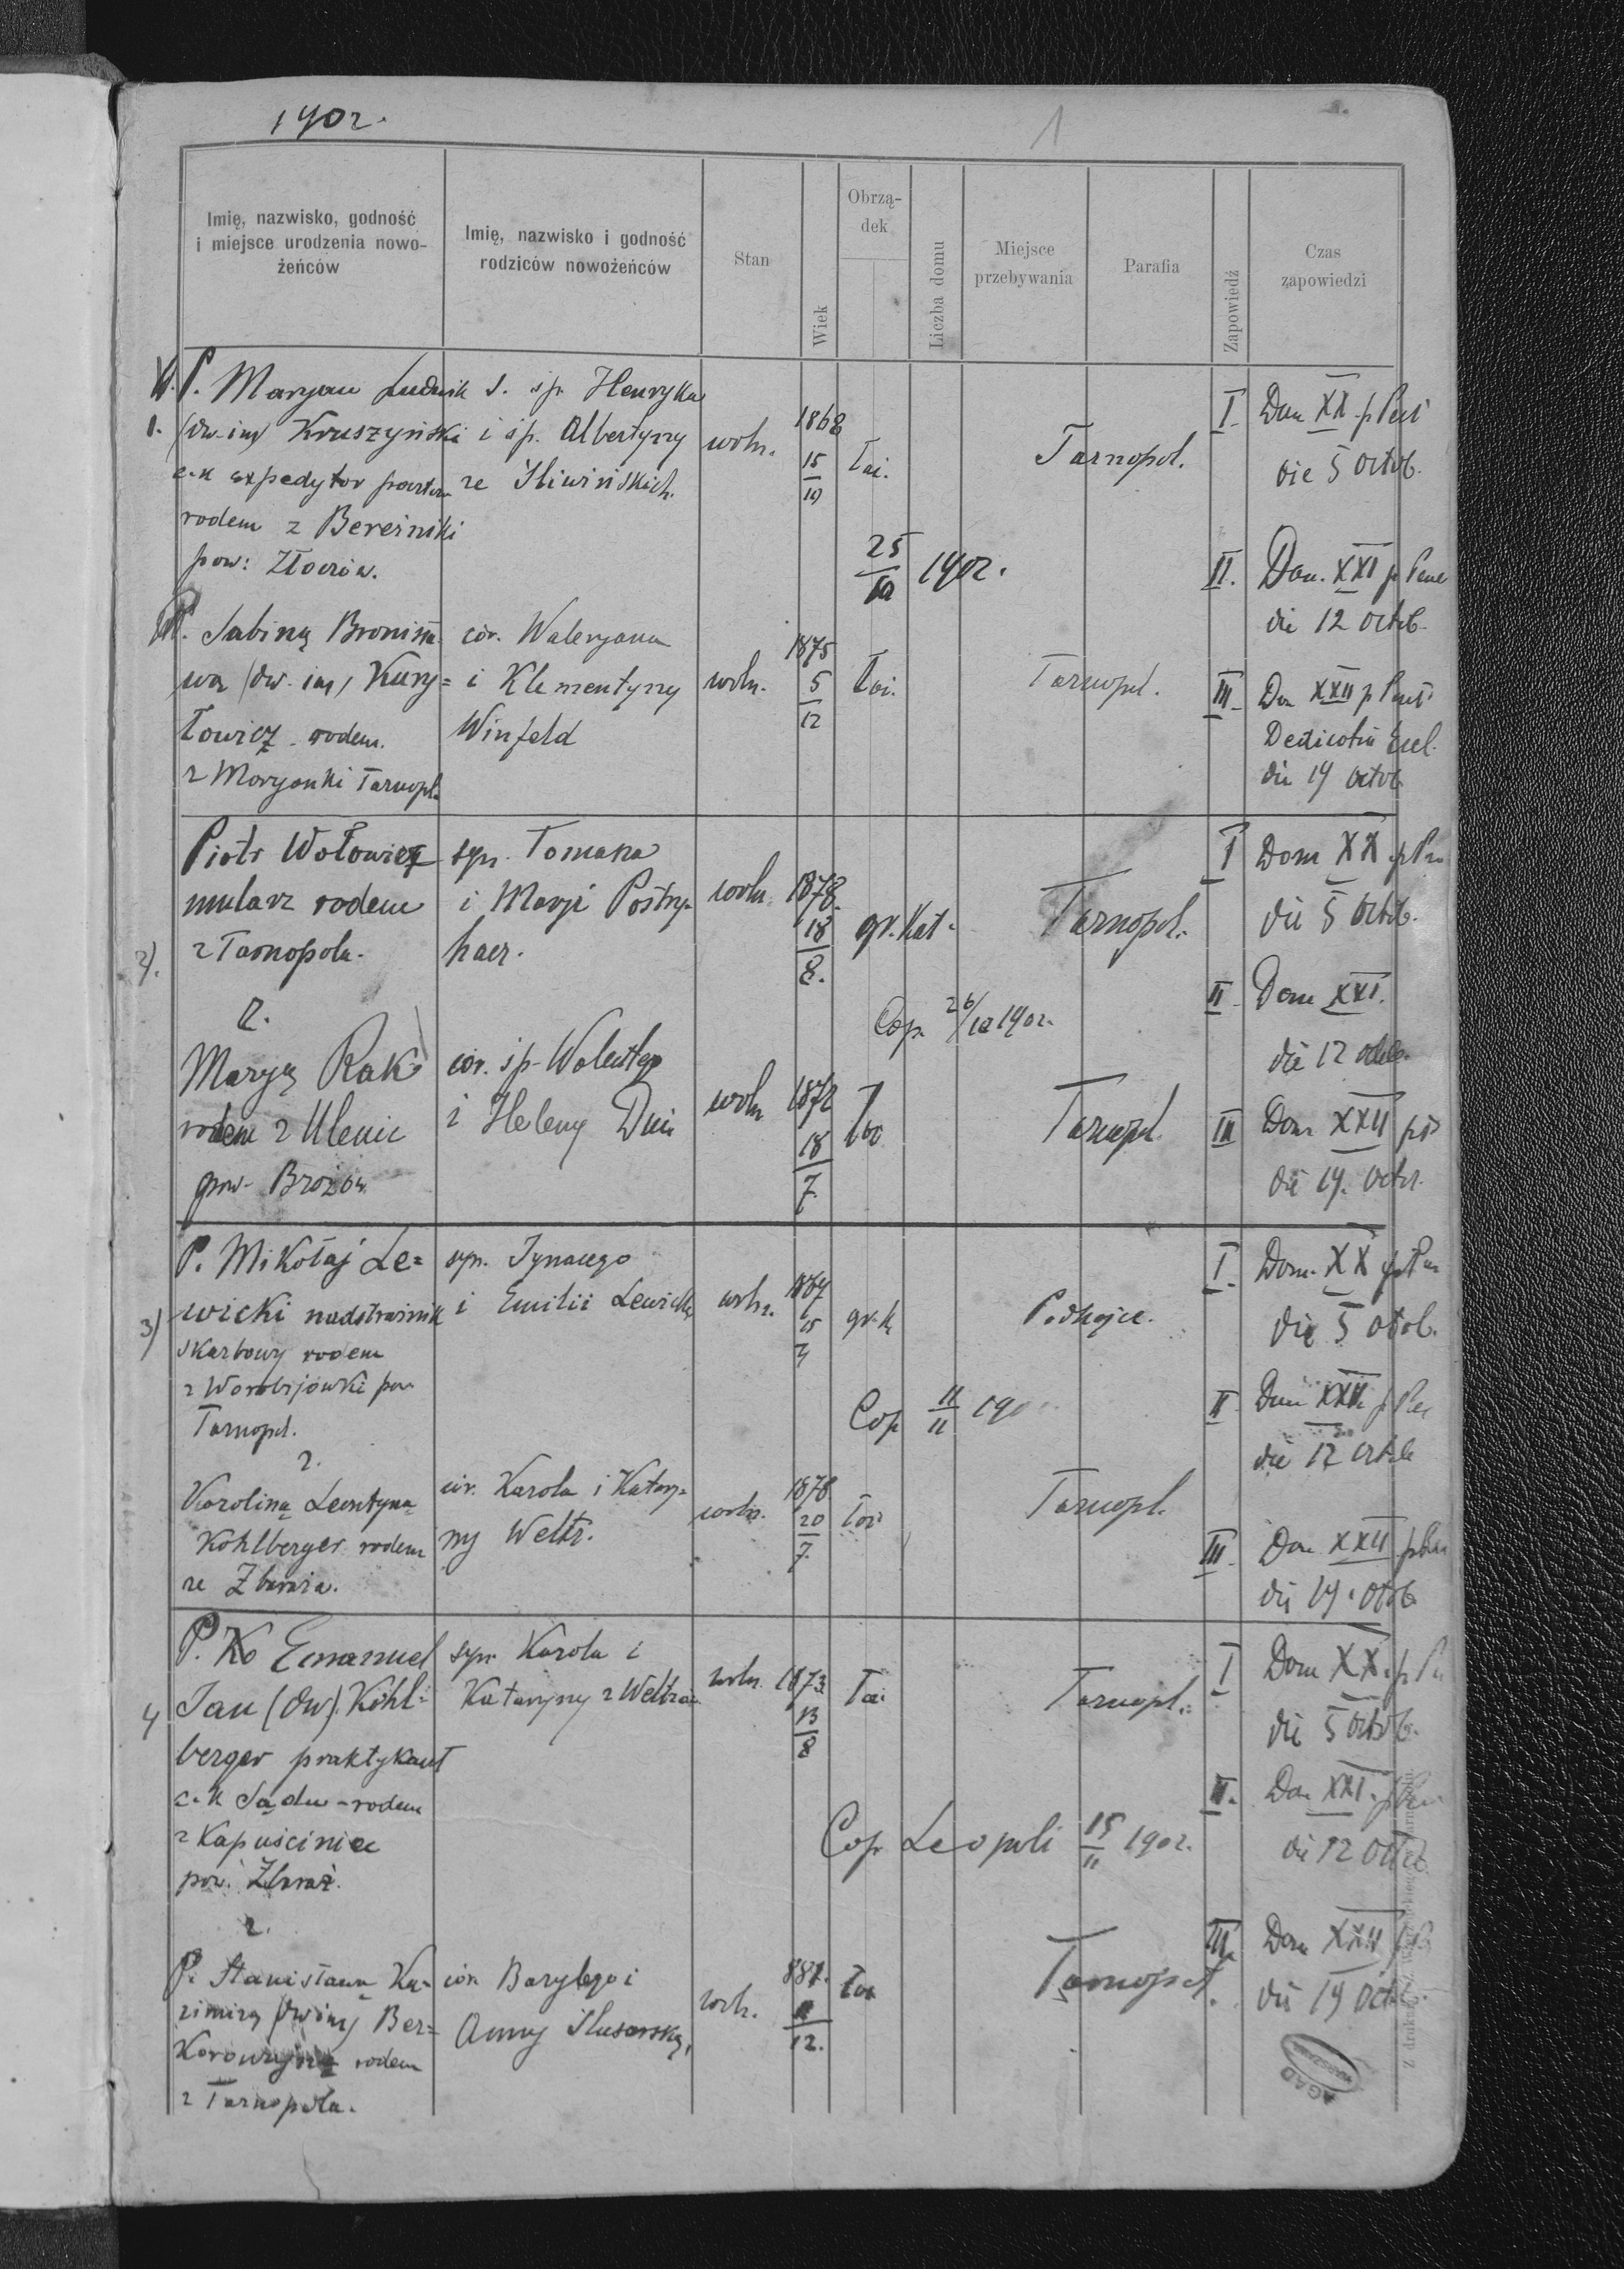 1902.
1
Imię, nazwisko, godność
i miejsce urodzenia nowo-
żeńców
Imię, nazwisko i godność
rodziców nowożeńców
Stan
Wiek
Obrzą-
dek
Liczba domu
Miejsce
przebywania
Parafia
Zapowiedź
Czas
zapowiedzi
1.
P. Maryan Ludwik
(dw. im) Kruszyński
c.k expedytor
rodem z Bereźniki
pow: Złoczów.
s. śp. Henryka
i śp. Albertyny
ze Śliwińskich.
woln.
1868
15
10
Łać.
Tarnopol.
25
10
1902.
I. Dom XX p Pent
die 5 Octob.
II. Dom. XXI p Pent
die 12 octob.
P. Sabiną Bronisła-
wą (dw. im) Kury=
łowicz rodem
z Maryanki Tarnopol.
cór. Waleryana
i Klementyny
Winfeld
woln.
1875
5
12
Łać.
Tarnopol.
III. Dom XXII p Pent
Dedicatio Eccl.
die 19 octob
2).
Piotr Wołowiec
mularz rodem
z Tarnopola.
syn. Tomasza
i Maryi
woln.
1878.
18
8.
gr. Kat.
Tarnopol.
I Dom XX p Pen
die 5 Octob.
Cop. 26/10 1902.
II. Dom XXI.
die 12 octob.
z.
Maryą Rak
rodem z Ulenic
pow. Brozów
cór. śp. Walentego
i Heleny
woln
1872
18
7.
Łać
Tarnopol.
III Dom XXII p P
die 19. Octob.
3)
P. Mikołaj Le=
wicki nadstrażnik
skarbowy rodem
z Worobijówki pow
Tarnopol.
syn. Ignacego
i Emilii Lewickich
woln.
1867
15
gr. k
Podhajce.
I. Dom. XX p Pen
die 5 octob.
Cop 11
11 190
II. Dom XXI p Pen
die 12 octob
z.
Karoliną Leontyną
Kohlberger rodem
ze Zbaraża.
cór. Karola i Katarzy=
ny Weltz.
woln.
1878
20
7.
Łać
Tarnopol.
III. Dom XXII p Pen
die 19. Octob
4
P. Emanuel
Jan (dw). Kohl=
berger praktykant
c.k Sądu - rodem
z Kapuściniec
pow. Zbaraż.
syn. Karola i
Katarzyny z Weltzów
woln.
1873
13
8
Łać
Tarnopol.
I Dom XX. p Pen
die 5 Octob.
II. Dom XXI. p Pen
die 12 Octob
Cop Leopoli 15
11 1902.
z.
P. Stanisławą Ka-
zimirą (dw im) Ber=
rodem
z Tarnopola.
cór. Bazylego i
Anny Ślusarską
woln.
881.
11
12.
Łać
Tarnopol.
III. Dom XXII p P
die 19 Octob.
AGAD